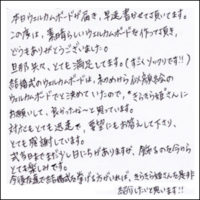 本日ウェルカムボードが届き、早速書かせて頂いてます。
この度は、素晴らしいウェルカムボードを作って頂き、
どうもありがとうございました。
旦那共々、とても満足してます。(すごくソックリです!!)
結婚式のウェルカムボードは、初めから似顔絵の
ウェルカムボードでと決めていたので、"きらきら姫"さんに
お願いして、良かったな〜と思っています。
対応もとても迅速で、要望にもお答えして下さり、
とても感謝しています。
式当日までまだ少し日にちがありますが、飾るのを今から
とても楽しみです。
今後友達で結婚式を挙げる方がいれば、きらきら姫さんを是非
紹介したいと思います!!